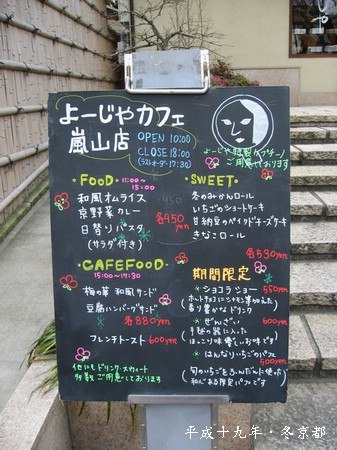 よーじやカフェ
嵐山店
OPEN 10:00
CLOSE 18:00
(ラストオーダー17:30)
よーじや特製カプチーノ
ご用意しております
・FOOD・11:00～15:00
和風オムライス
京野菜カレー
日替りパスタ
(サラダ付き)
各950yen
・CAFEFOOD・
15:00～17:30
梅の華 和風サンド
豆腐ハンバーグサンド
各880yen
フレンチトースト 660yen
他にもドリンク・スウィート
多数ご用意しております
・SWEET・
冬のみかんロール
いちごのショートケーキ
甘納豆のベイクドチーズケーキ
きなこロール
各530yen
期間限定
ショコラショー 550yen
香り豊かなドリンク
ぜんざい 600yen
手毬の麩に入った
ほっこり味楽しいお味です
はんなりいちごのパフェ
500yen
和心ある限定パフェです
平成十九年・冬京都